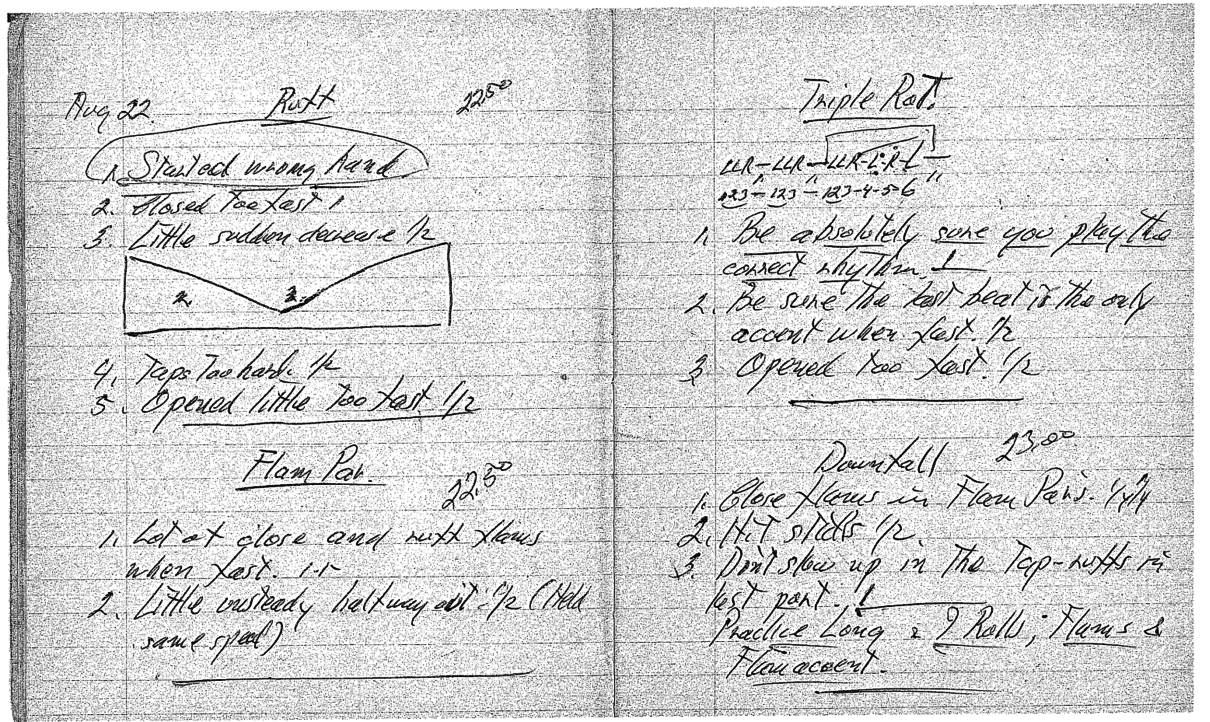 Aug 22 Ruff 22.50
1. Started wrong hand
2. Closed too fast 1
3. Little sudden decrease 1/2
2. 3.
4. Taps too hard. 1/2
5. Opened little too fast. 1/2
Flam Par.
22.50
1. Lot of close and ruff flams
when fast. 1-1-
2. Little unsteady halfway out. 1/2 (Held
same speed)
Triple Rat.
LLR-LLR-LLR-L-R-L-
123-123-123-4-5-6 "
1. Be absolutely sure you play the
correct rhythm. 1
2. Be sure the last beat is the only
accent when fast. 1/2
3. Opened too fast. 1/2
Downfall 23.00
1. Close flams in Flam Pars. 1/4 1/4
2. Hit sticks 1/2.
3. Don't slow up in the Tap-ruffs in
last part. 1
Practice Long & 9 Rolls; Flams &
Flam accent.